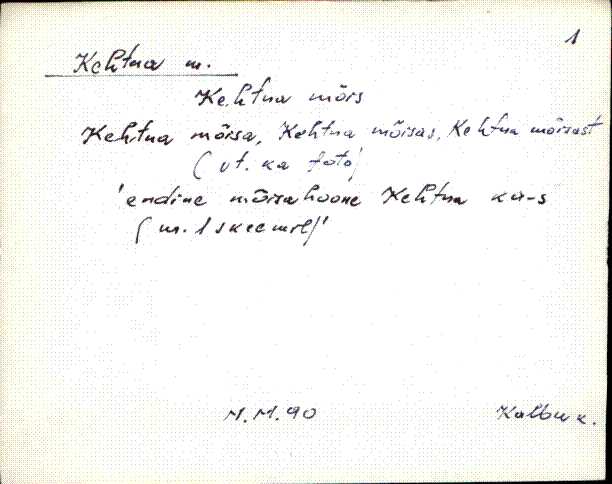 1
Kehtna m.
Kehtna mõrs
Kehtna mõrsa, Kehtna mõisas, Kehtna mõisast
( vt. ka foto)
'endine mõisahoone Kehtna kü-s
( nr. 1 skeemil)'
M.M.90 Kalbu k.